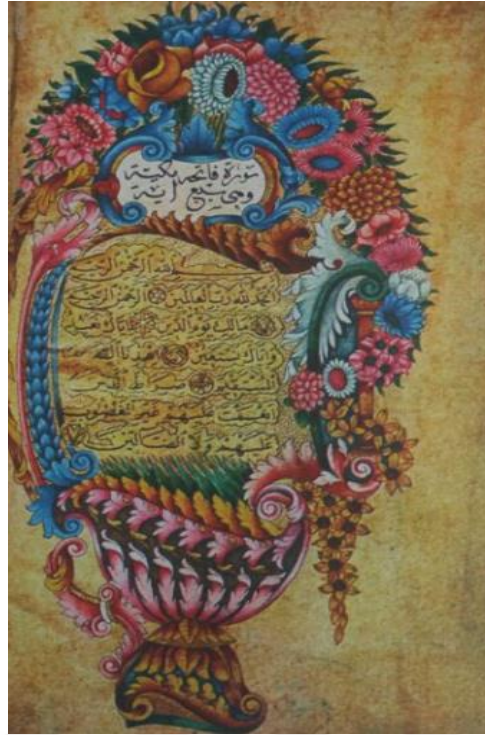 سورة فاتحه مكية
وهي سبع آية
بسم الله الرحمن الرحيم
الحمد لله رب العالمين الرحمن الرحيم
مالك يوم الدين اياك نعبد
واياك نستعين اهدنا الصراط
المستقيم صراط الذين
انعمت عليهم غير المغضوب
عليهم ولا الضالين